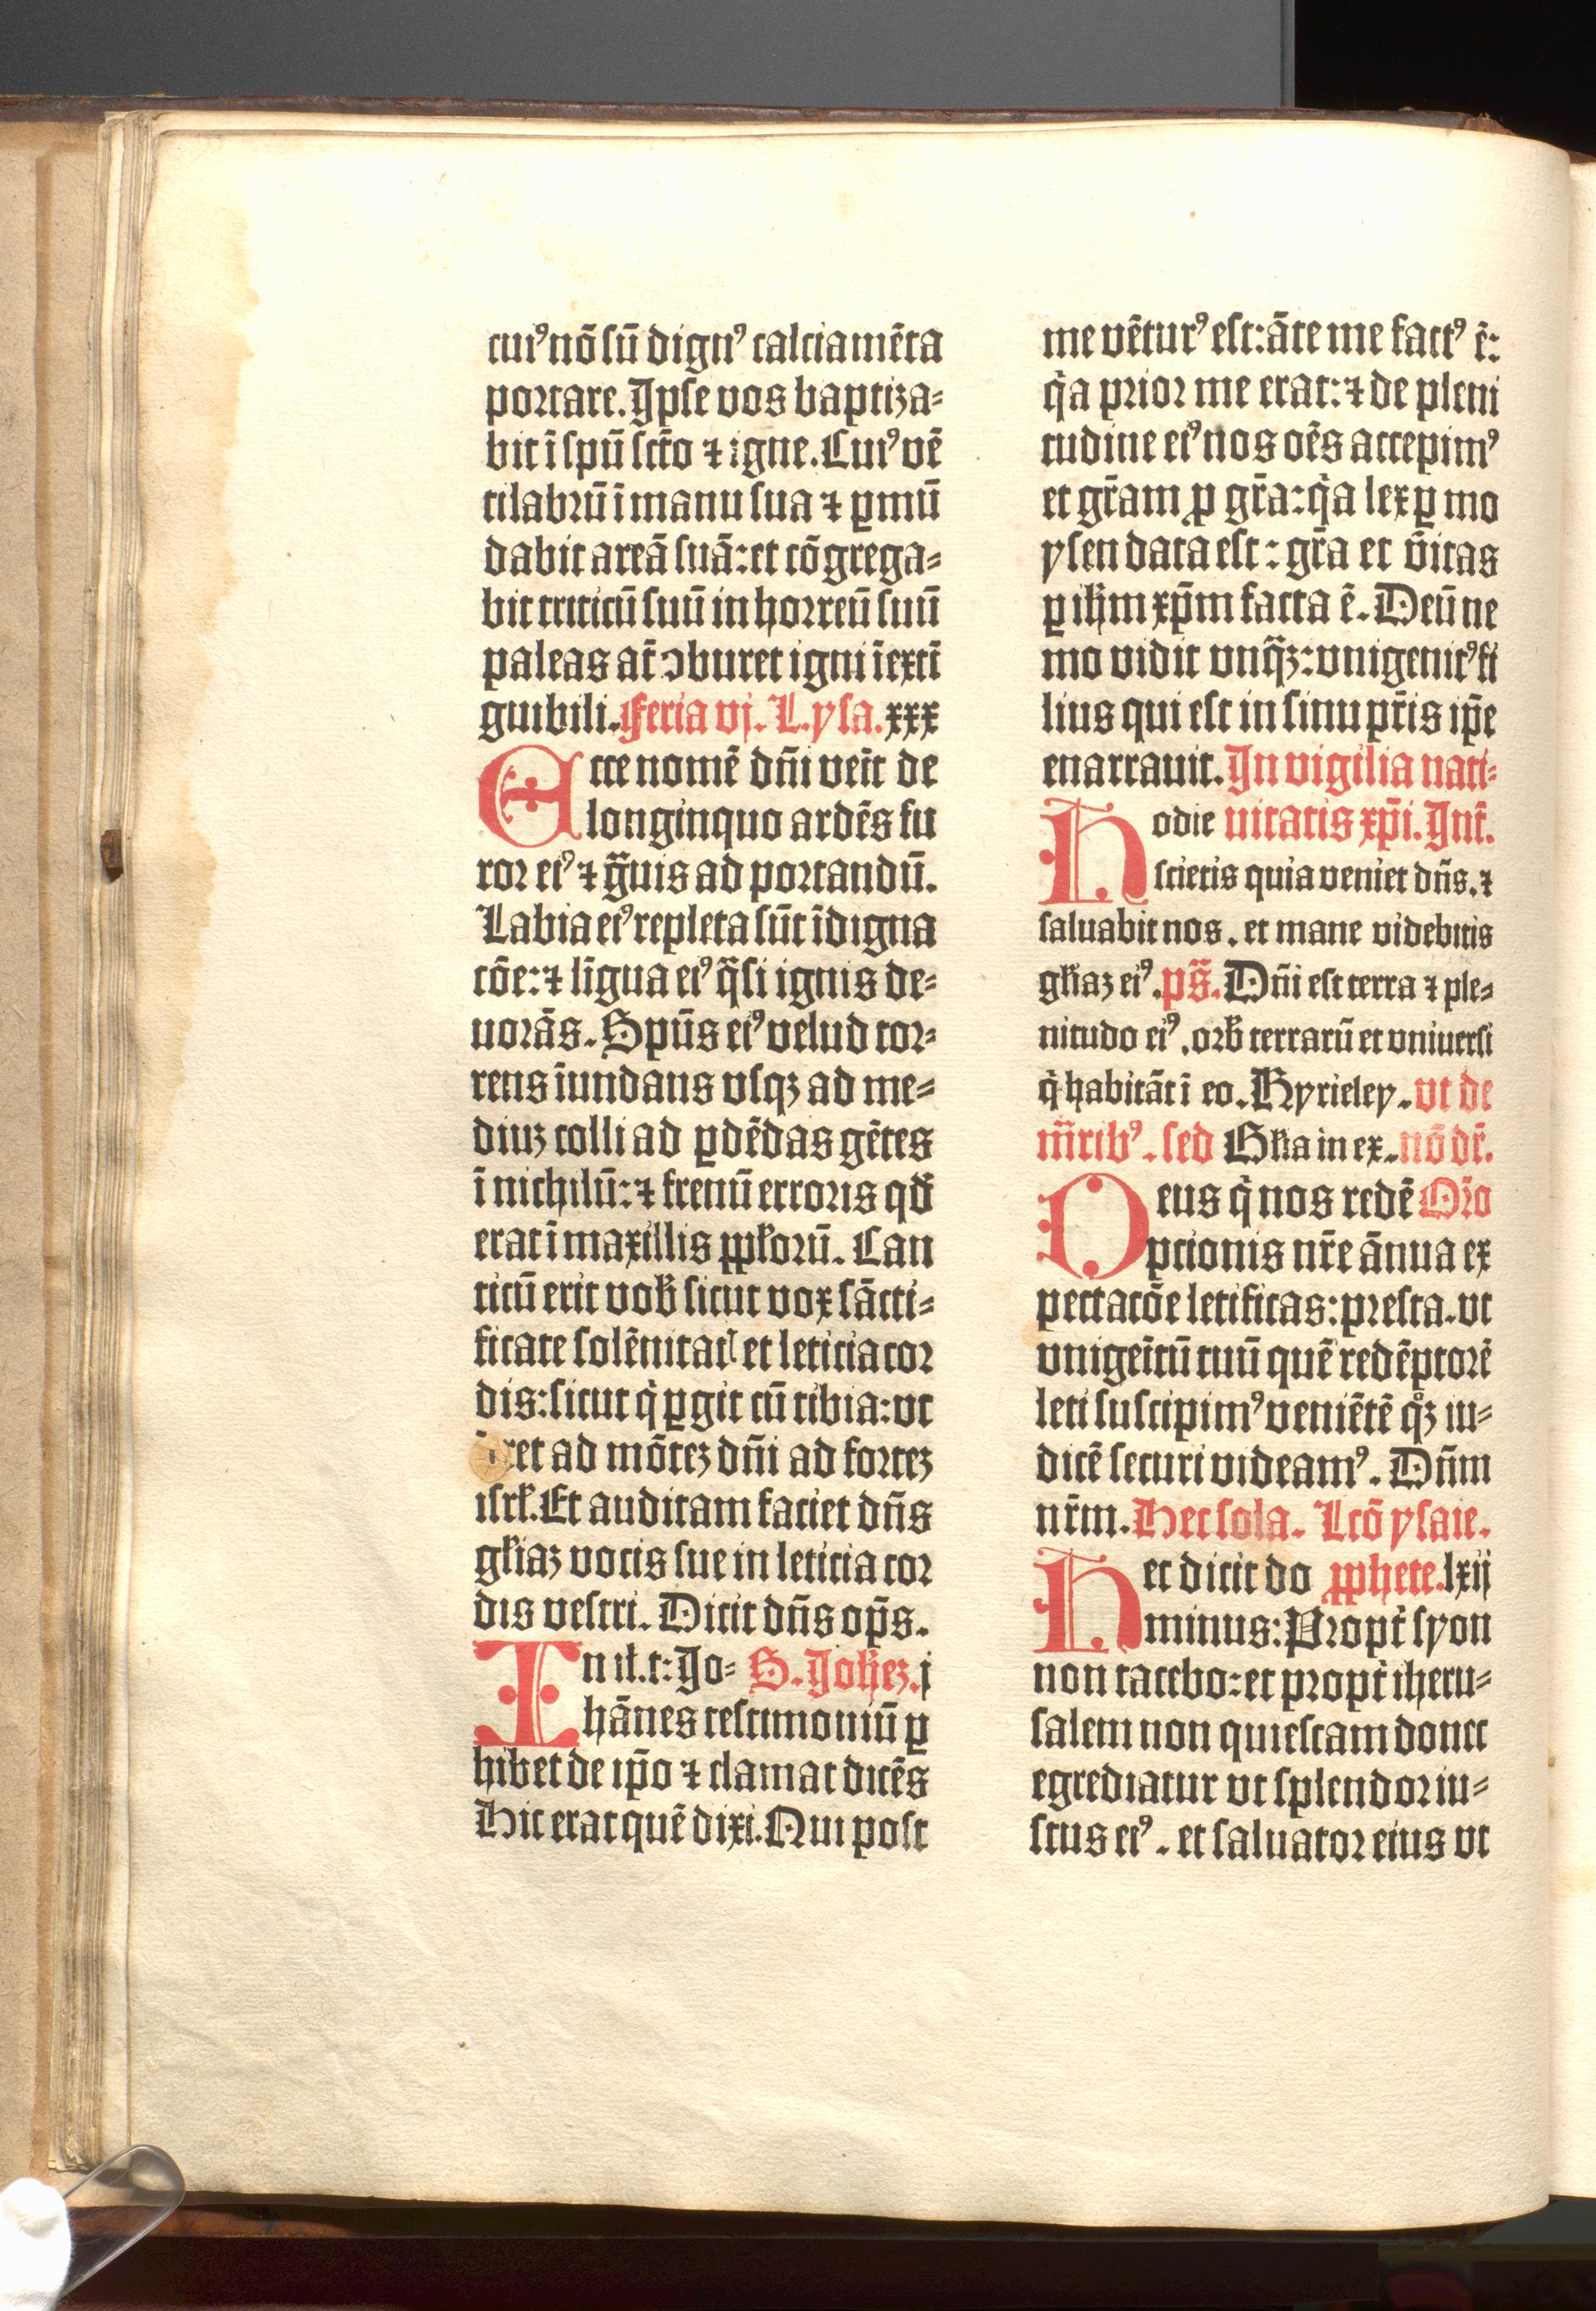 cuiꝰ nō sū dignꝰ calciamēta
portare. Ipse vos baptiza⸗
bit ī spū sctō ⁊ igne. Cuiꝰ vē
tilabrū ī manu sua ⁊ ꝑmū
dabit areā suā: et cōgrega⸗
bit triticū suū in horreū suū
paleas at̄ ꝯburet igni īextī
guibili. Feria vj. L. ysa. xxx
Ecce nomē dn̄i veīt de
longinquo ardēs fu
ror eiꝰ ⁊ gͣuis ad portandū.
Labia eiꝰ repleta sūt īdigna
cōe: ⁊ līgua eiꝰ qͣsi ignis de⸗
uorās. Spūs eiꝰ velud tor⸗
rens īundans vsqꝫ ad me⸗
diuꝫ colli ad ꝑdēdas gētes
ī nichilū: ⁊ frenū erroris qđ
erat ī maxillis ꝓpłorū. Can
ticū erit vob̄ sicut vox sācti⸗
ficate solēnitatꝭ et leticia cor
dis: sicut qͥ ꝑgit cū tibia: vt
ītret ad mōteꝫ dn̄i ad forteꝫ
isrł. Et auditam faciet dn̄s
gl̄iaꝫ vocis sue in leticia cor
dis vestri. Dicit dn̄s op̄s.
In il. t: Jo⸗ S. Joh̄eꝫ. j
hānes testimoniū ꝑ
hibet de ip̄o ⁊ clamat dicēs
Hic erat quē dixi. Qui post
me vēturꝰ est: āte me factꝰ ē:
qͥa prior me erat: ⁊ de pleni
tudine eiꝰ nos oēs accepimꝰ
et gr̄am ꝓ gr̄a: qͥa lex ꝑ mo
ysen data est: gr̄a et v̄itas
ꝑ ih̄m xp̄m facta ē. Deū ne
mo vidit vnqͣꝫ: vnigenitꝰ fi
lius qui est in sinu pr̄is ip̄e
enarrauit. In vigilia nati⸗
Hodie uitatis xp̄i. Int̄.
scietis quia veniet dn̄s. ⁊
saluabit nos. et mane videbitis
gl̄iaꝫ eiꝰ. p̄s̄. Dn̄i est terra ⁊ ple⸗
nitudo eiꝰ. orb̄ terrarū et vniuersi
qͥ habitāt ī eo. Kyrieley. vt de
m̄ribꝰ. sed Gl̄ia in ex. nō dr̄.
Deus qͥ nos redē Or̄o
ptionis nr̄e ānua ex
pectatōe letificas: presta. vt
vnigeītū tuū quē redēptorē
leti suscipimꝰ veniētē qͦꝫ iu⸗
dicē securi videamꝰ. Dn̄m
nr̄m. Hec sola. Lcō ysaie.
Hec dicit do ꝓphete. lxij
minus: Propt̄ syon
non tacebo: et propt̄ iheru⸗
salem non quiescam donec
egrediatur vt splendor iu⸗
stus eiꝰ. et saluator eius vt